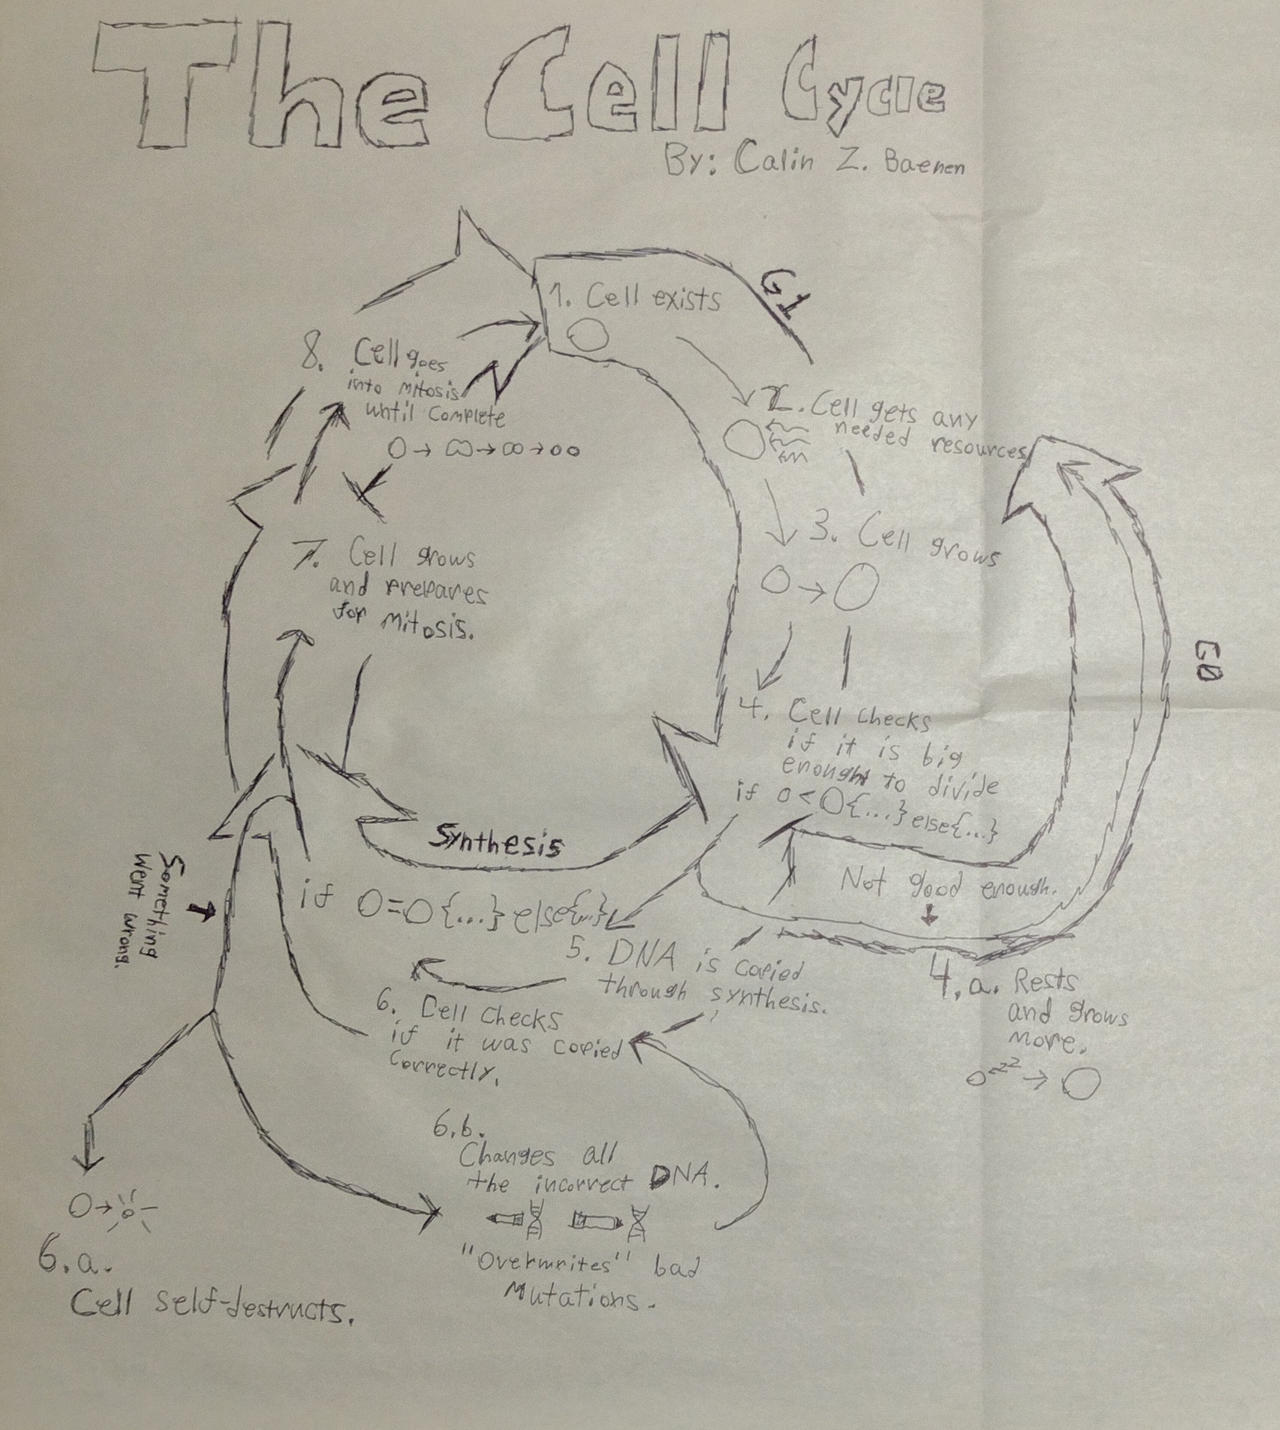 The Cell Cycle
By: Calin Z. Baenen
G1
1. Cell exists
2. Cell gets any
needed resources
3. Cell grows
4. Cell checks
if it is big
enought to divide
if O<O{...}else{...}
G0
Not good enough.
4.a. Rests
and grows
more.
zzz
Synthesis
if O=O{...}else{...}
5. DNA is copied
through synthesis.
6. Cell checks
if it was copied
correctly.
Something
went wrong.
6.a.
Cell self-destructs.
6.b.
Changes all
the incorrect DNA.
"Overwrites" bad
Mutations.
7. Cell grows
and prepares
for mitosis.
8. Cell goes
into mitosis
until complete